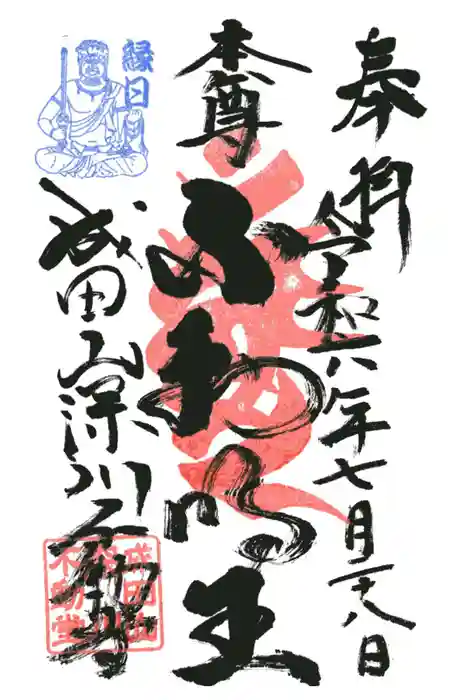 奉拝
令和六年七月二十八日
本尊
不動明王
成田山深川不動尊
縁日
成田山
深川
不動堂